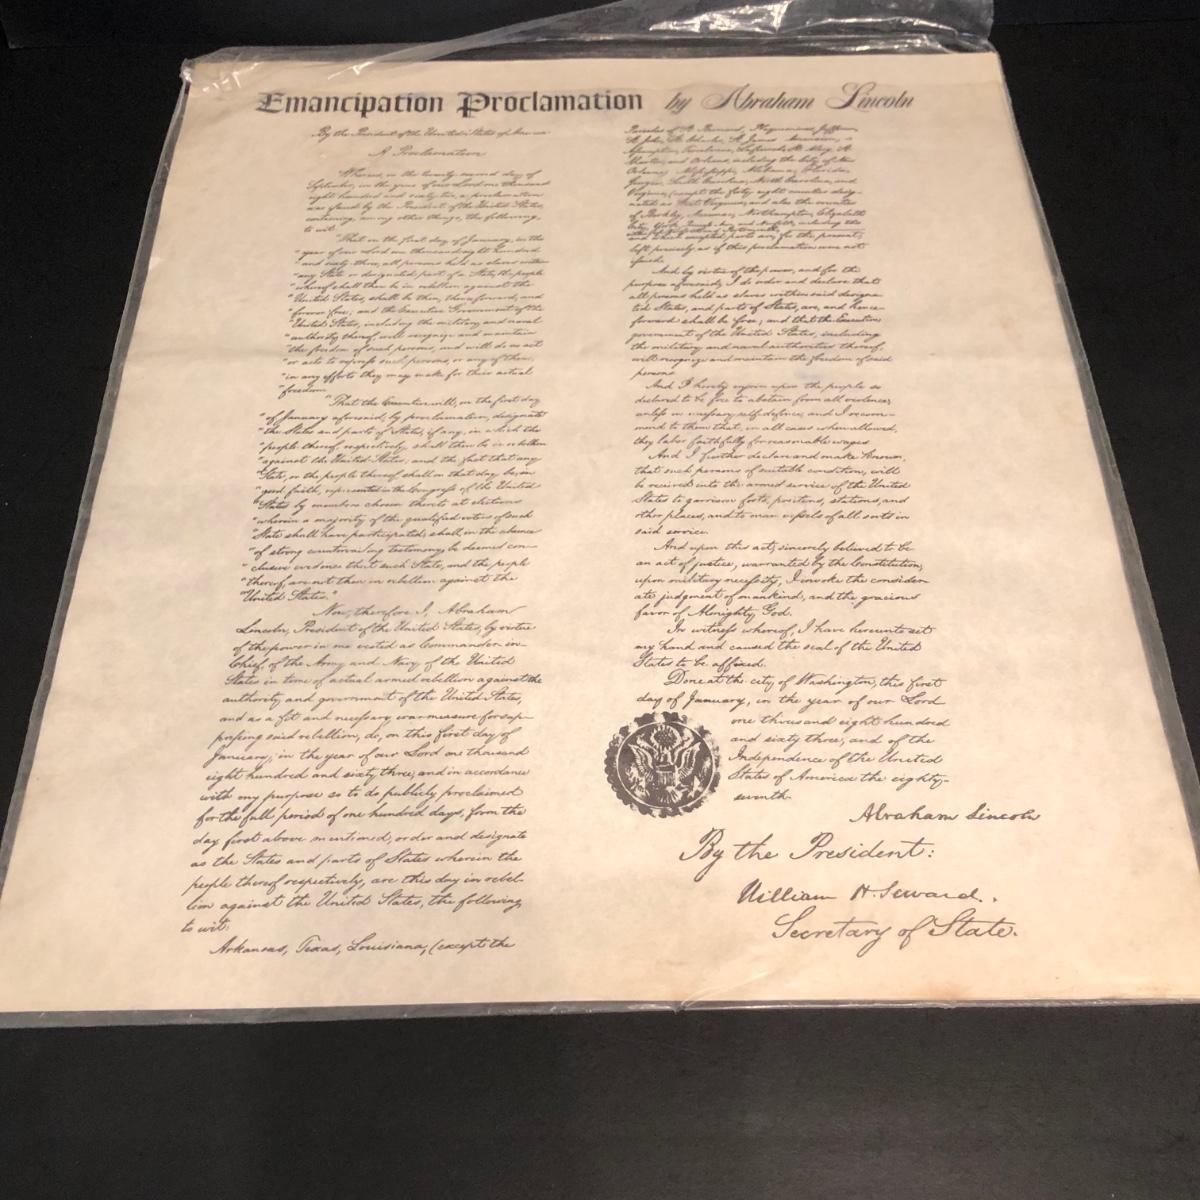 Emancipation Proclamation by Abraham Lincoln
By the President of the United States of America
A Proclamation
Whereas, on the twenty second day of
September, in the year of our Lord one thousand
eight hundred and sixty two, a proclamation
was issued by the President of the United States,
containing, among other things, the following,
to wit:
"That on the first day of January, in the
"year of our Lord one thousand eight hundred
"and sixty-three, all persons held as slaves within
"any State or designated part of a State, the people
"whereof shall then be in rebellion against the
"United States, shall be then, thenceforward, and
"forever free; and the Executive Government of the
"United States, including the military and naval
"authority thereof, will recognize and maintain
"the freedom of such persons, and will do no act
"or acts to repress such persons, or any of them,
"in any efforts they may make for their actual
"freedom.
"That the Executive will, on the first day
"of January aforesaid, by proclamation, designate
"the States and parts of States, if any, in which the
"people thereof, respectively, shall then be in rebellion
"against the United States; and the fact that any
"State, or the people thereof shall on that day be in
"good faith, represented in the Congress of the United
"States by members chosen thereto at elections
"wherein a majority of the qualified voters of such
"State shall have participated, shall, in the absence
"of strong countervailing testimony, be deemed con-
"clusive evidence that such State, and the people
"thereof, are not then in rebellion against the
"United States."
Now, therefore I, Abraham
Lincoln, President of the United States, by virtue
of the power in me vested as Commander-in-
Chief, of the Army and Navy of the United
States in time of actual armed rebellion against the
authority and government of the United States,
and as a fit and necessary war measure for sup-
pressing said rebellion, do, on this first day of
January, in the year of our Lord one thousand
eight hundred and sixty three, and in accordance
with my purpose so to do publicly proclaimed
for the full period of one hundred days, from the
day first above mentioned, order and designate
as the States and parts of States wherein the
people thereof respectively, are this day in rebel-
lion against the United States, the following,
to wit:
Arkansas, Texas, Louisiana, (except the
Parishes of St. Bernard, Plaquemines, Jefferson,
St. John, St. Charles, St. James Ascension,
Assumption, Terrebonne, Lafourche, St. Mary, St.
Martin, and Orleans, including the City of New
Orleans) Mississippi, Alabama, Florida,
Georgia, South Carolina, North Carolina, and
Virginia, (except the forty eight counties desig-
nated as West Virginia, and also the counties
of Berkley, Accomac, Northampton, Elizabeth
City, York, Princess Ann, and Norfolk, including the
and which excepted parts are, for the present,
left precisely as if this proclamation were not
issued.
And by virtue of the power, and for the
purpose aforesaid, I do order and declare that
all persons held as slaves within said designa-
ted States, and parts of States, are, and hence-
forward shall be free; and that the Executive
government of the United States, including
the military and naval authorities thereof,
will recognize and maintain the freedom of said
persons.
And I hereby enjoin upon the people so
declared to be free to abstain from all violence,
unless in necessary self-defence; and I recom-
mend to them that, in all cases when allowed,
they labor faithfully for reasonable wages.
And I further declare and make known,
that such persons of suitable condition, will
be received into the armed service of the United
States to garrison forts, positions, stations, and
other places, and to man vessels of all sorts in
said service.
And upon this act, sincerely believed to be
an act of justice, warranted by the Constitution,
upon military necessity, I invoke the consider-
ate judgment of mankind, and the gracious
favor of Almighty God.
In witness whereof, I have hereunto set
my hand and caused the seal of the United
States to be affixed.
Done at the city of Washington, this first
day of January, in the year of our Lord
one thousand eight hundred
and sixty three, and of the
Independence of the United
States of America the eighty-
seventh.
Abraham Lincoln
By the President:
William H. Seward.
Secretary of State.